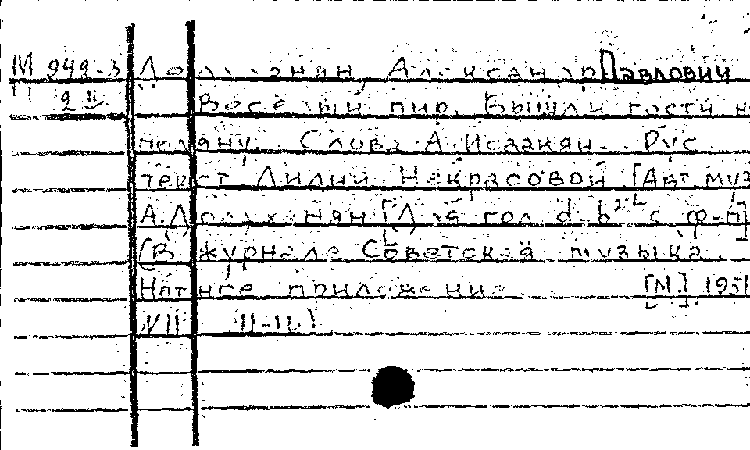 М 949-3 Долуханян, Александр Павлович
Веселый пир. Вышли гости н
поляну. Слова А. Исаакян. Рус
текст Лилии Некрасовой [Авт муз
А. Долуханян] [Для гол d-b² с ф-п]
(В журнале Советская музыка.
Нотное приложение [М.] 1951
VII